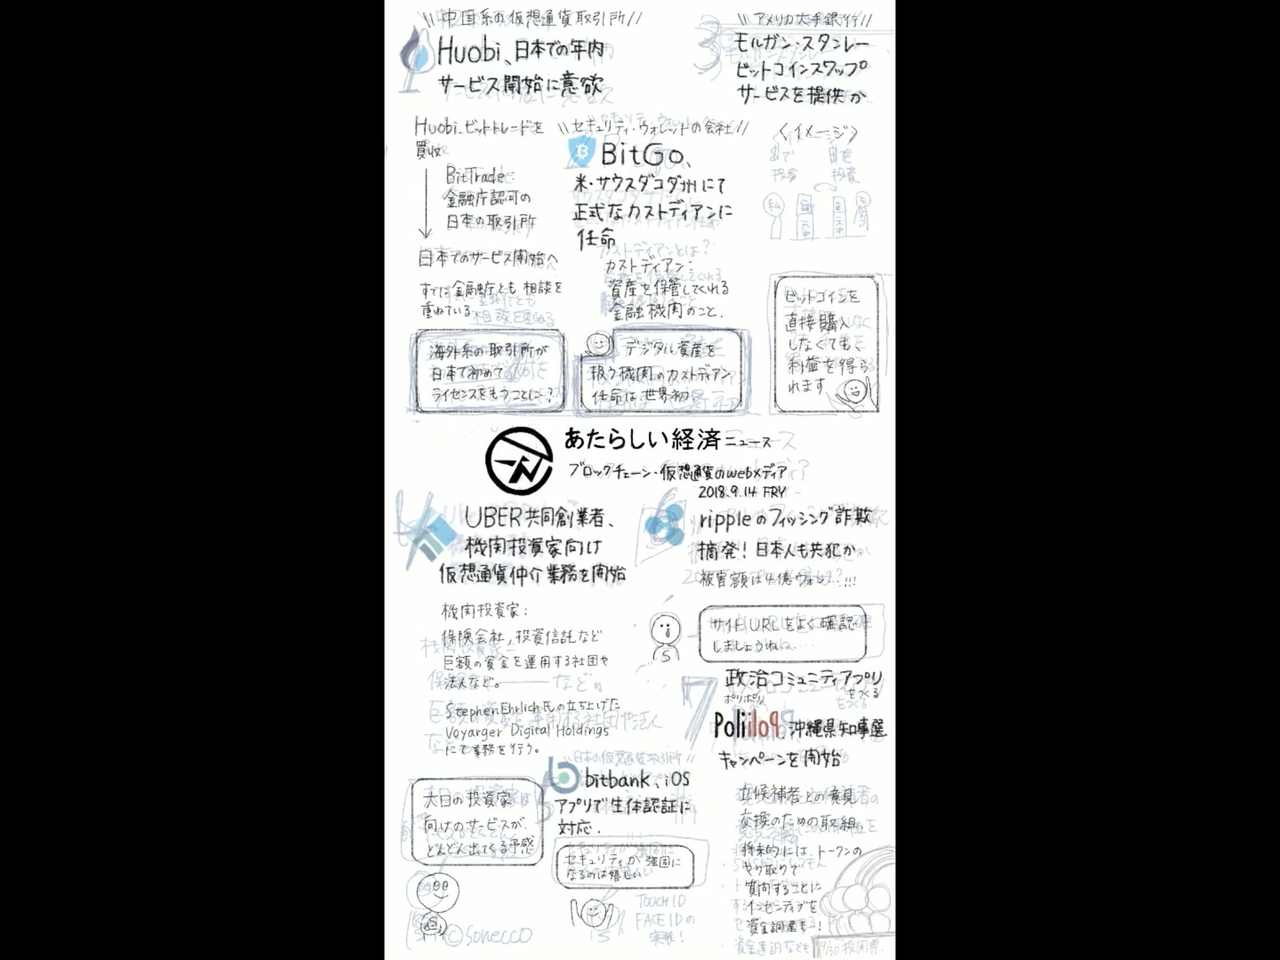 \\中国系の仮想通貨取引所//
Huobi、日本での年内
サービス開始に意欲
Huobi、ビットトレードを
買収
BitTrade:
金融庁認可の
日本の取引所
日本でのサービス開始へ
すでに金融庁とも相談を
重ねている
海外系の取引所が
日本で初めて
ライセンスをもつことに…?
\\セキュリティ・ウォレットの会社//
BitGo、
米・サウスダコダ州にて
正式なカストディアンに
任命
カストディアン:
資産を保管してくれる
金融機関のこと.
デジタル資産を
扱う機関のカストディアン
任命は世界初
\\アメリカ大手銀行//
3
モルガン・スタンレー
ビットコインスワップ
サービスを提供か
〈イメージ〉
投資 投資
ビットコインを
直接購入
しなくても、
利益を得ら
れます
あたらしい経済ニュース
ブロックチェーン・仮想通貨のwebメディア
2018.9.14 FRY
UBER共同創業者、
機関投資家向け
仮想通貨仲介業務を開始
機関投資家:
保険会社、投資信託など
巨額の資金を運用する社団や
法人など。
Stephen Ehrlich氏の立ち上げた
Voyarger Digital Holdings
にて業務を行う。
大口の投資家
向けのサービスが、
どんどん出てくる予感
©sonecco
rippleのフィッシング詐欺
摘発！日本人も共犯か
被害額は4億ウォン…!!!
サイトURLをよく確認
しましょうね…
\\日本の仮想通貨取引所//
bitbank、iOS
アプリで生体認証に
対応.
セキュリティが強固に
なるのは嬉しい
TOUCH ID
FACE IDの
実装！
7
政治コミュニティアプリ
ポリポリ
をつくる
Polipoli 沖縄県知事選
キャンペーンを開始
立候補者との意見
交換のための取組
将来的には、トークンの
やり取りで
質向することに
インセンティブを
資金調達も！
9/30 投開票